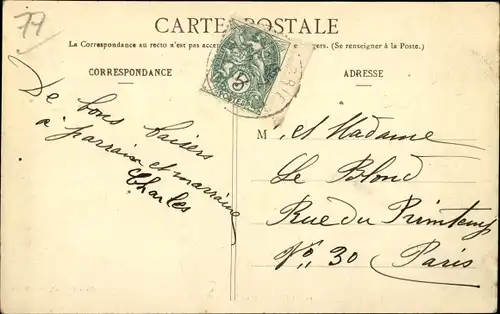 77
CARTE POSTALE
La Correspondance au recto n'est pas accep gers. (Se renseigner à la Poste.)
CORRESPONDANCE
ADRESSE
5
POSTES
De bons baisers
à parrain et marraine
Charles
M et Madame
Le Blond
Rue du Printemps
No 30 Paris